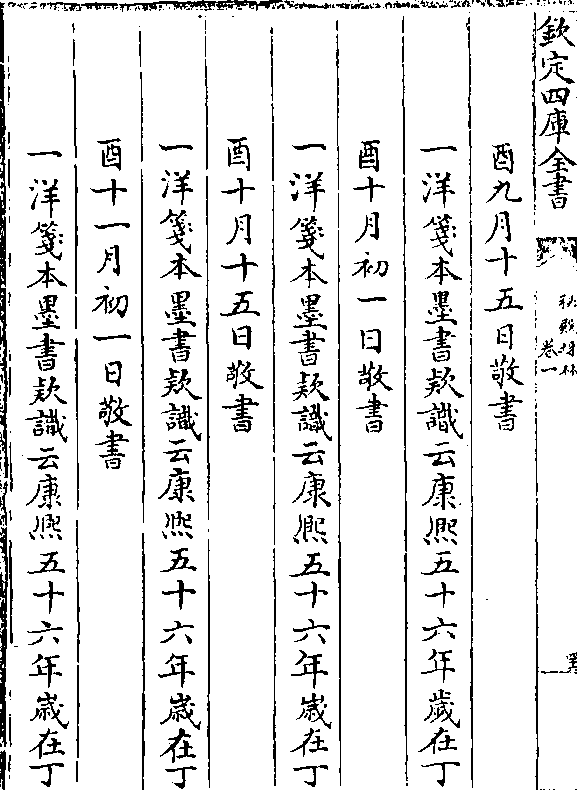 欽定四庫全書
秘殿珠林
卷一
酉九月十五日敬書
一洋箋本墨書欵識云康熙五十六年歲在丁
酉十月初一日敬書
一洋箋本墨書欵識云康熙五十六年歲在丁
酉十月十五日敬書
一洋箋本墨書欵識云康熙五十六年歲在丁
酉十一月初一日敬書
一洋箋本墨書欵識云康熙五十六年歲在丁